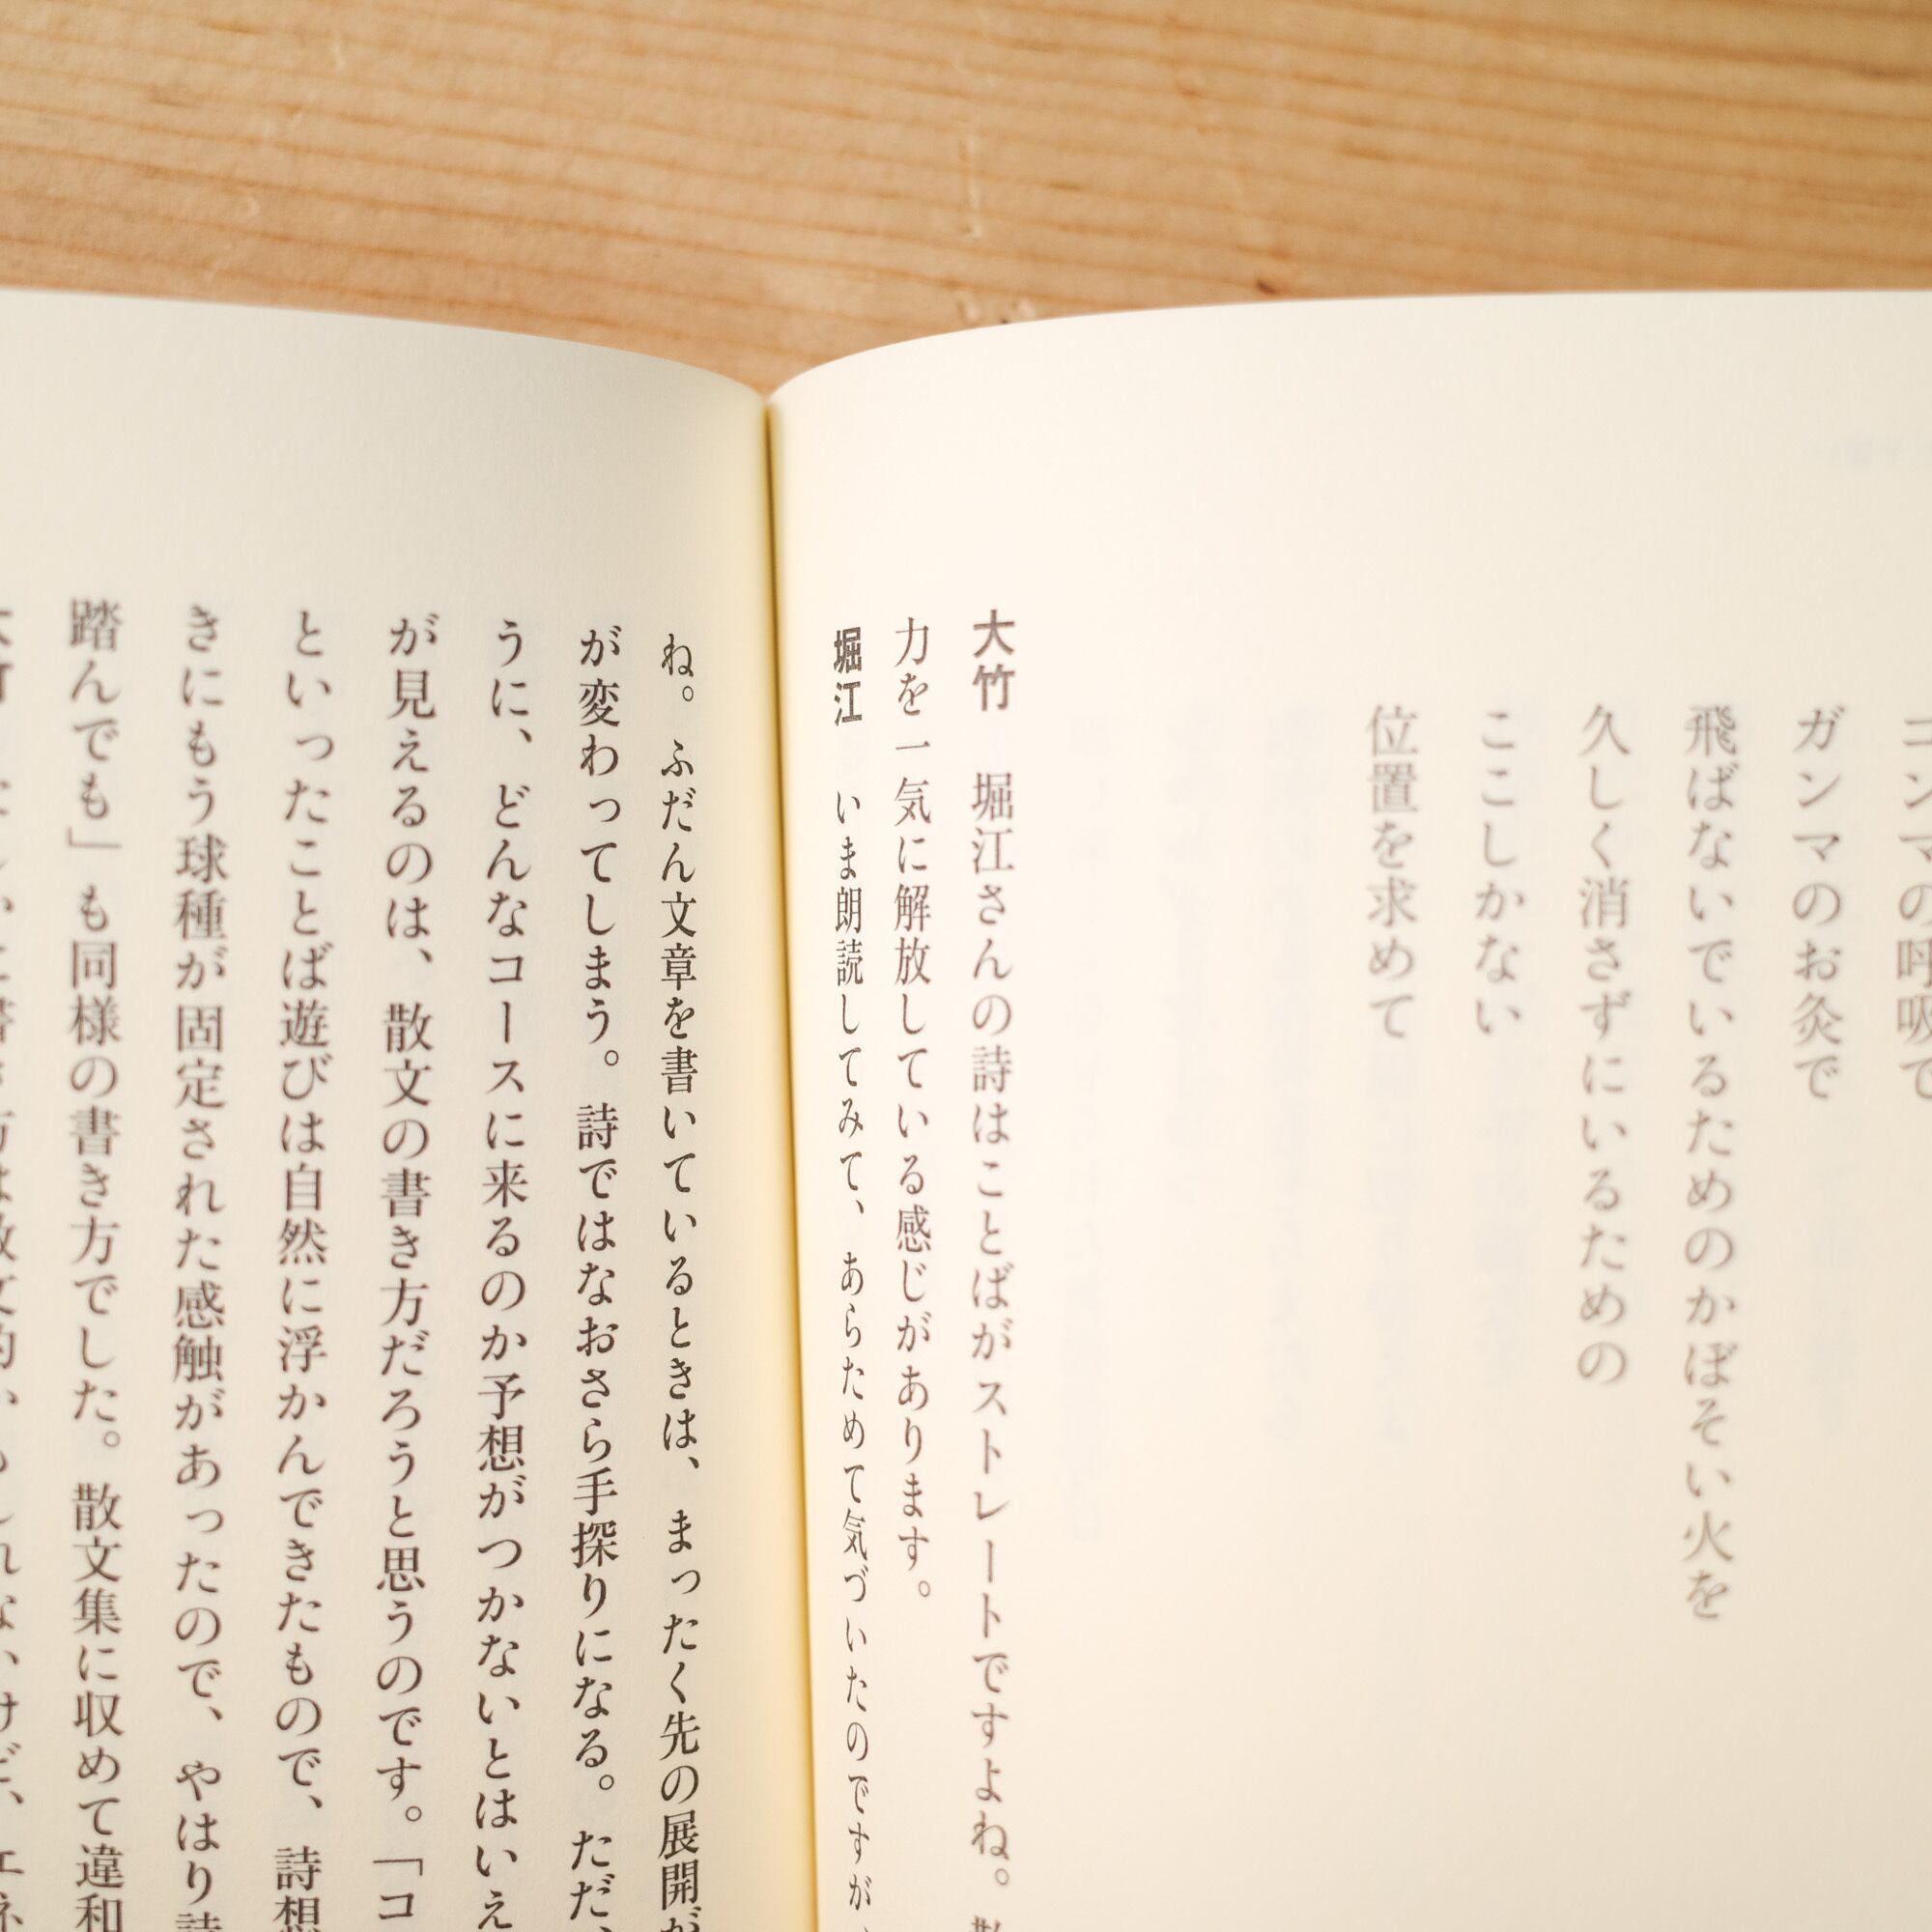 ンマの呼吸で
ガンマのお灸で
飛ばないでいるためのかぼそい火を
久しく消さずにいるための
ここしかない
位置を求めて
大竹　堀江さんの詩はことばがストレートですよね。
力を一気に解放している感じがあります。
堀江　いま朗読してみて、あらためて気づいたのですが、
ね。ふだん文章を書いているときは、まったく先の展開が
が変わってしまう。詩ではなおさら手探りになる。ただ、
うに、どんなコースに来るのか予想がつかないとはいえ
が見えるのは、散文の書き方だろうと思うのです。「コ
といったことば遊びは自然に浮かんできたもので、詩想
きにもう球種が固定された感触があったので、やはり詩
踏んでも」も同様の書き方でした。散文集に収めて違和